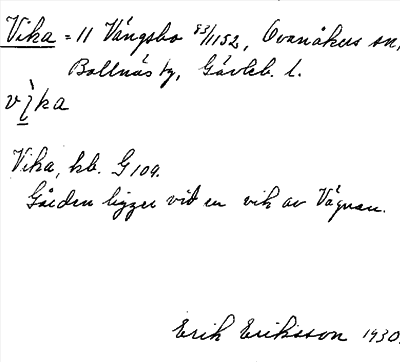 Vika = 11 Vängsbo 83/1152, Ovanåkers sn,
Bollnäs tg, Gävleb. l.
vika
Vika, kb. G 109.
Gården ligger vid en vik av Vägnan.
Erik Eriksson 1930.